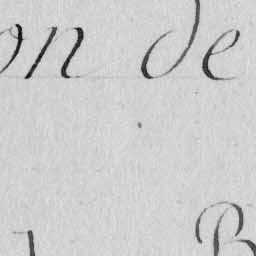 on de
B